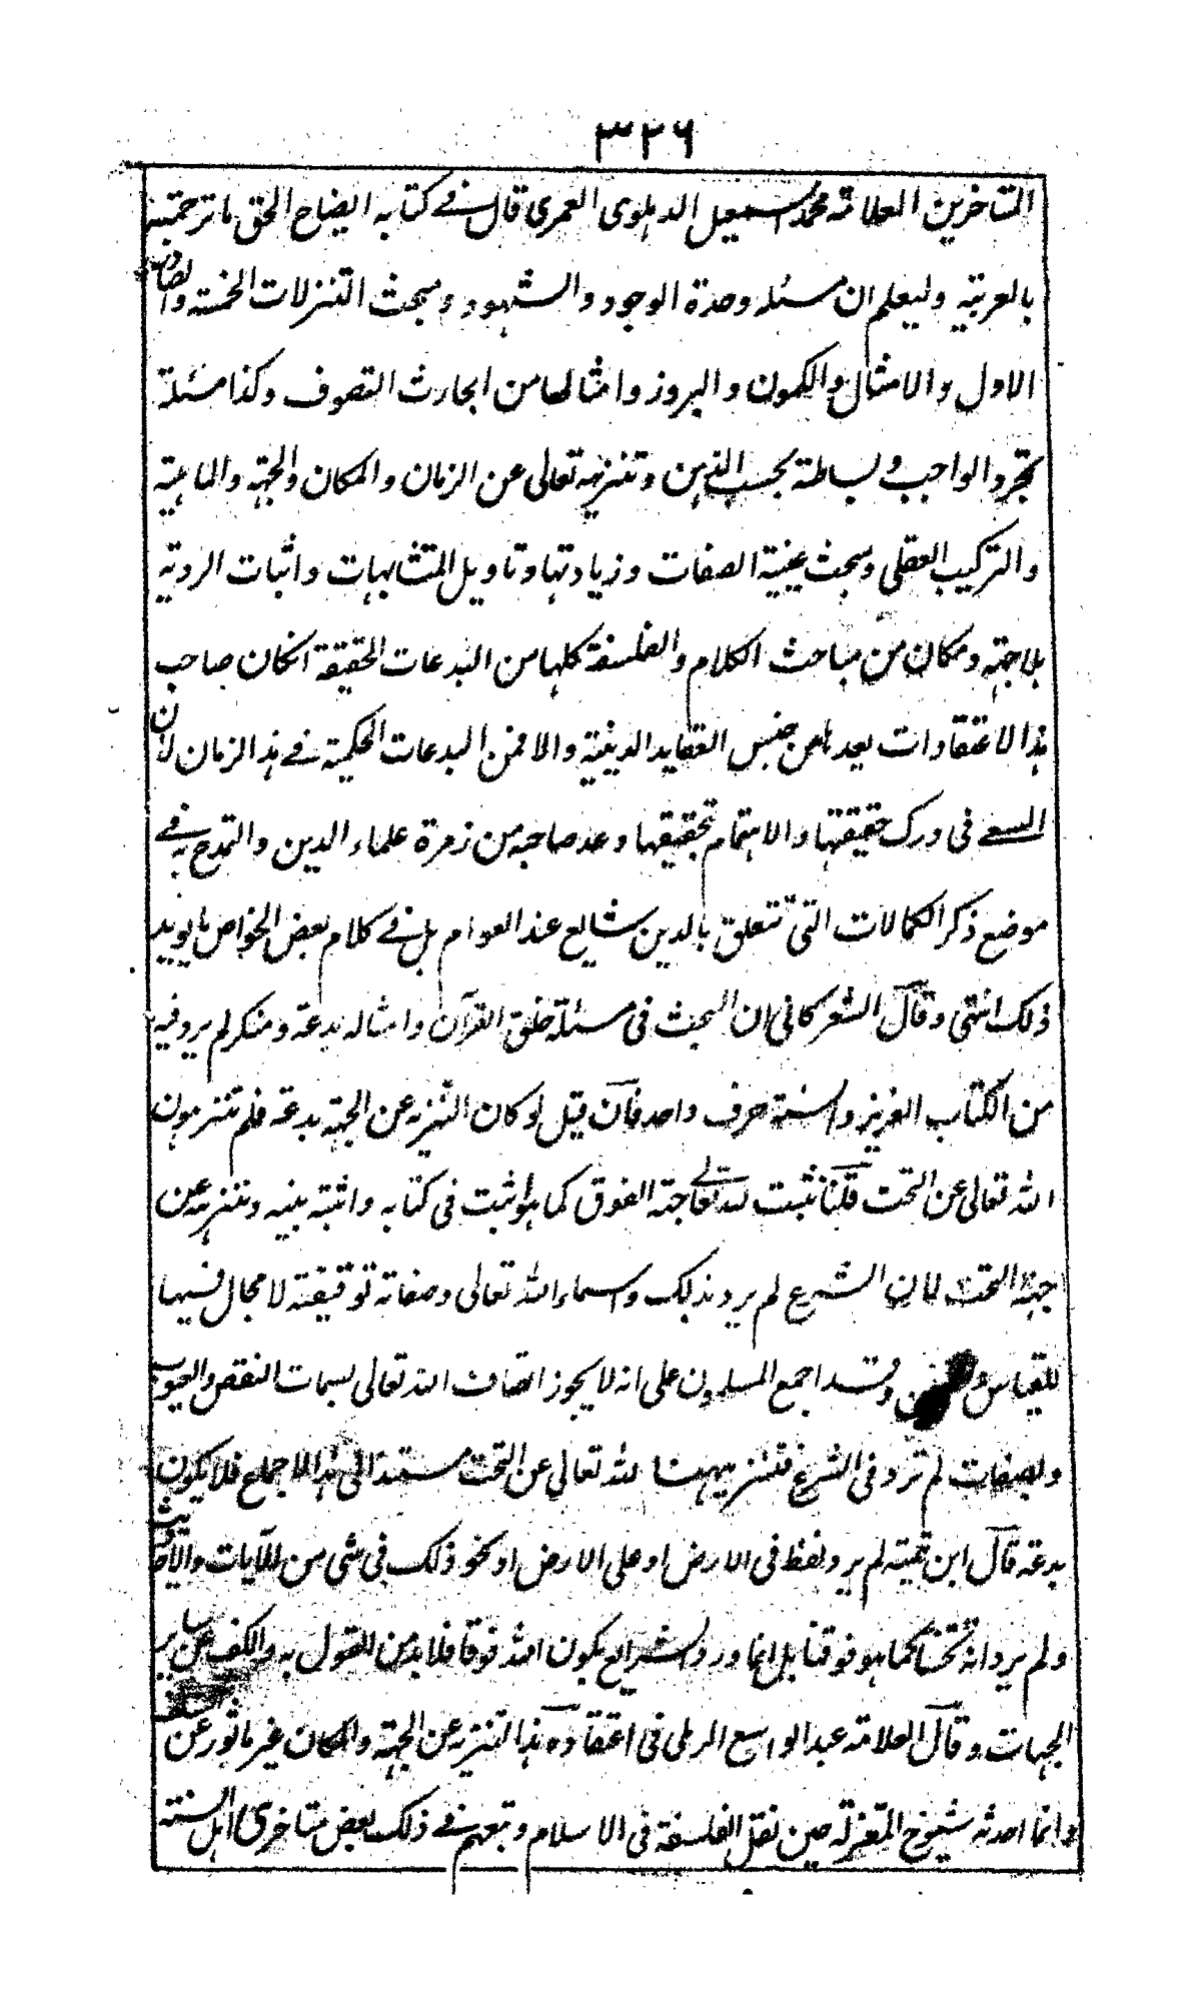 ٣٢٦
المتاخرين العلامة محمد اسمعيل الدهلوى العمرى قال فے كتابه ايضاح الحق ما ترجمته
بالعربية وليعلم ان مسئله وحدة الوجود والشهود ومبحث التنزلات الخمسة والصادر
الاول والامثال والكمون والبروز وامثالها من ابحارث التصوف وكذا مسئلة
تجرد الواجب وبساطة بحسب الذهن وتنزيهه تعالى عن الزمان والمكان والجهة والماهية
والتركيب العقلى ومبحث عينية الصفات وزيادتها وتاويل المتشابهات واثبات الروية
بلا جهة ومكان من مباحث الكلام والفلسفة كلها من البدعات الحقيقة انكان صاحب
هذا الاعتقادات يعدها من جنس العقايد الدينية والا فمن البدعات الحكمية فے هذا الزمان لان
السعے فى درك حقيقتها والاهتمام بتحقيقها وعد صاحبه من زمرة علماء الدين والتمدح به فے
موضع ذكر الكمالات التى تتعلق بالدين شايع عند العوام بل فے كلام بعض الخواص ما يويد
ذلك انتهى وقال الشوكانى ان البحث فى مسئلة خلق القرآن وامثاله بدعة ومنكر لم يرد فيه
من الكتاب العزيز والسنة حرف واحد فان قيل لو كان التنزيه عن الجهة بدعة فلم تنزهون
الله تعالى عن التحت قلنا نثبت لله تعالے جهة الفوق كما هو اثبت فى كتابه واثبته نبيه وننزهه عن
جهة التحت لان الشرع لم يرد بذلك واسماء الله تعالى وصفاته توقيفية لا مجال فيها
للقياس وقد اجمع المسلمون على انه لا يجوز اتصاف الله تعالى بسمات النقص والعيوب
وبصفات لم ترد فى الشرع فتنزيهنا لله تعالى عن التحت مستند الى هذا الاجماع فلا يكون
بدعة قال ابن تيمية لم يرد لفظ فى الارض او على الارض او نحو ذلك فى شى من الآيات والاحاديث
ولم يرد انه تحتنا كما هو فوقنا بل انما ورد الشرايع بكون الله فوقا فلا بد من القول به والكف عن ساير
الجهات وقال العلامة عبد الواسع الرملى فى اعتقاده هذا التنزيه عن الجهة والمكان غير ماثور عن السلف
وانما احدثه شيوخ المعتزلة حين نقل الفلسفة فى الاسلام وتبعهم فے ذلك بعض متاخرى اهل السنة